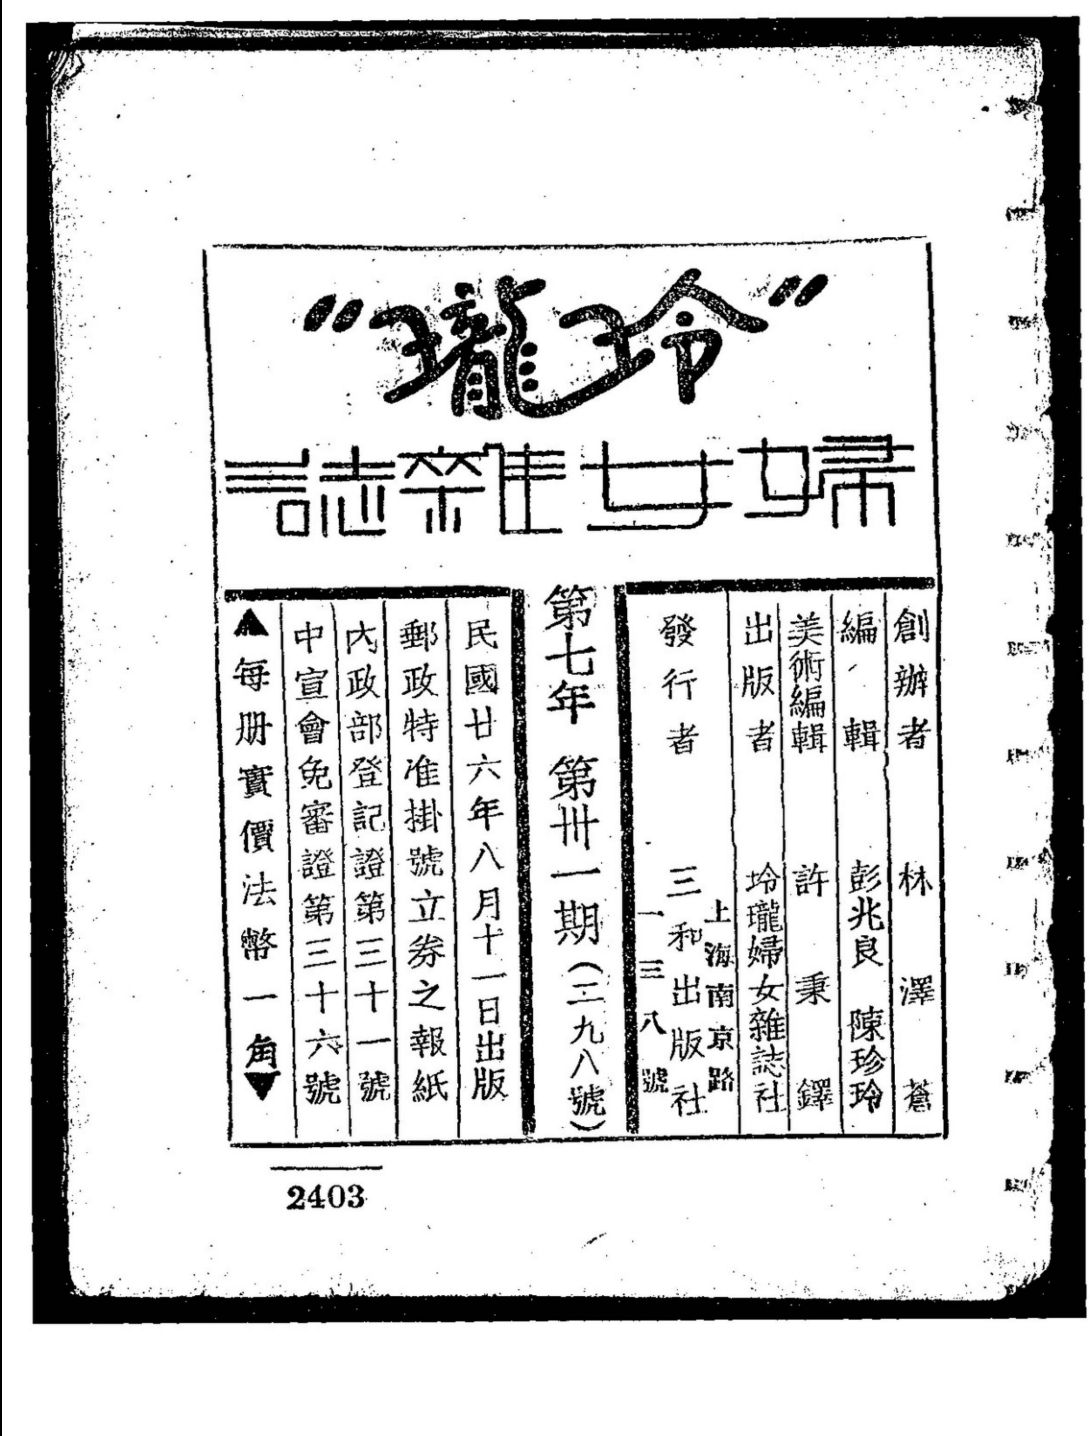 “玲瓏”
婦女雜誌
創辦者 林澤蒼
編輯 彭兆良 陳珍玲
美術編輯 許秉鐸
出版者 玲瓏婦女雜誌社
發行者 三和出版社
上海南京路
一三八號
第七年 第卅一期(二九八號)
民國廿六年八月十一日出版
郵政特准掛號立券之報紙
內政部登記證第三十一號
中宣會免審證第三十六號
▲每册實價法幣一角▼
2403